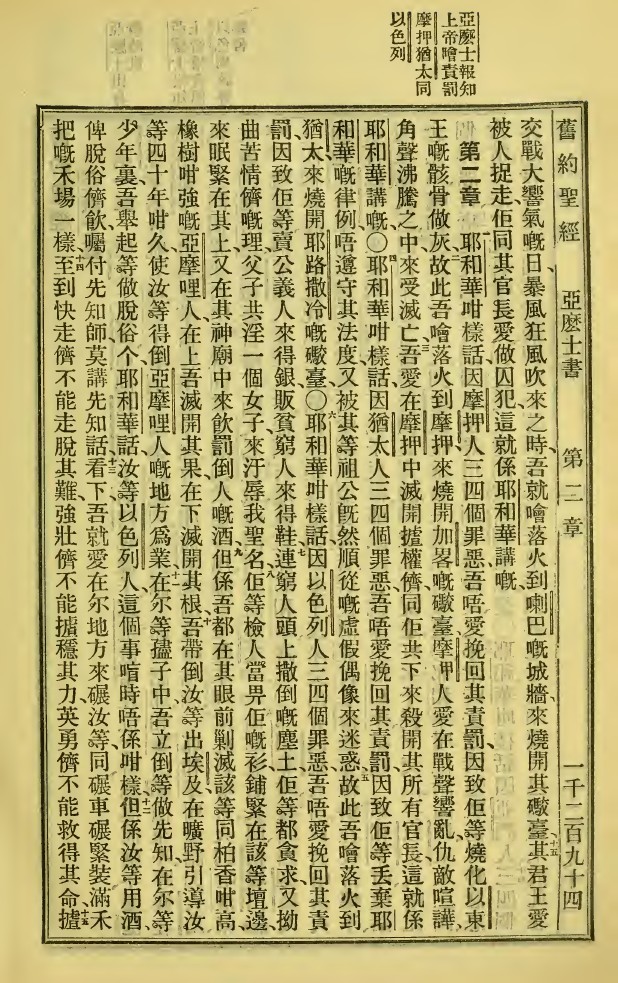 亞麽士報知
上帝噲責罰
摩押猶太同
以色列
舊約聖經 亞麽士書 第二章 一千二百九十四
交戰大響氣嘅日暴風狂風吹來之時吾就噲落火到喇巴嘅城牆來燒開其礮臺十五其君王愛
被人捉走佢同其官長愛做囚犯這就係耶和華講嘅
第二章 一耶和華咁樣話因摩押人三四個罪惡吾唔愛挽回其責罰因致佢等燒化以東
王嘅骸骨做灰二故此吾噲落火到摩押來燒開加畧嘅礮臺摩押人愛在戰聲響亂仇敵喧譁
角聲沸騰之中來受滅亡三吾愛在摩押中滅開攎權儕同佢共下來殺開其所有官長這就係
耶和華講嘅〇四耶和華咁樣話因猶太人三四個罪惡吾唔愛挽回其責罰因致佢等丟棄耶
和華嘅律例唔遵守其法度又被其等祖公旣然順從嘅虛假偶像來迷惑五故此吾噲落火到
猶太來燒開耶路撒冷嘅礮臺〇六耶和華咁樣話因以色列人三四個罪惡吾唔愛挽回其責
罰因致佢等賣公義人來得銀販貧窮人來得鞋七連窮人頭上撒倒嘅塵土佢等都貪求又拗
曲苦情儕嘅理父子共淫一個女子來汙辱我聖名八佢等檢人當畀佢嘅衫鋪緊在該等壇邊
來眠緊在其上又在其神廟中來飲罰倒人嘅酒九但係吾都在其眼前剿滅該等同柏香咁高
橡樹咁強嘅亞摩哩人在上吾滅開其果在下滅開其根十吾帶倒汝等出埃及在曠野引導汝
等四十年咁久使汝等得倒亞摩哩人嘅地方爲業十一在尔等𡥧子中吾立倒等做先知在尔等
少年裏吾舉起等做脫俗个耶和華話汝等以色列人這個事唷時唔係咁樣十二但係汝等用酒
俾脫俗儕飲囑付先知師莫講先知話十三看下吾就愛在尔地方來碾汝等同碾車碾緊裝滿禾
把嘅禾場一樣十四至到快走儕不能走脫其難強壯儕不能攎穩其力英勇儕不能救得其命十五攎